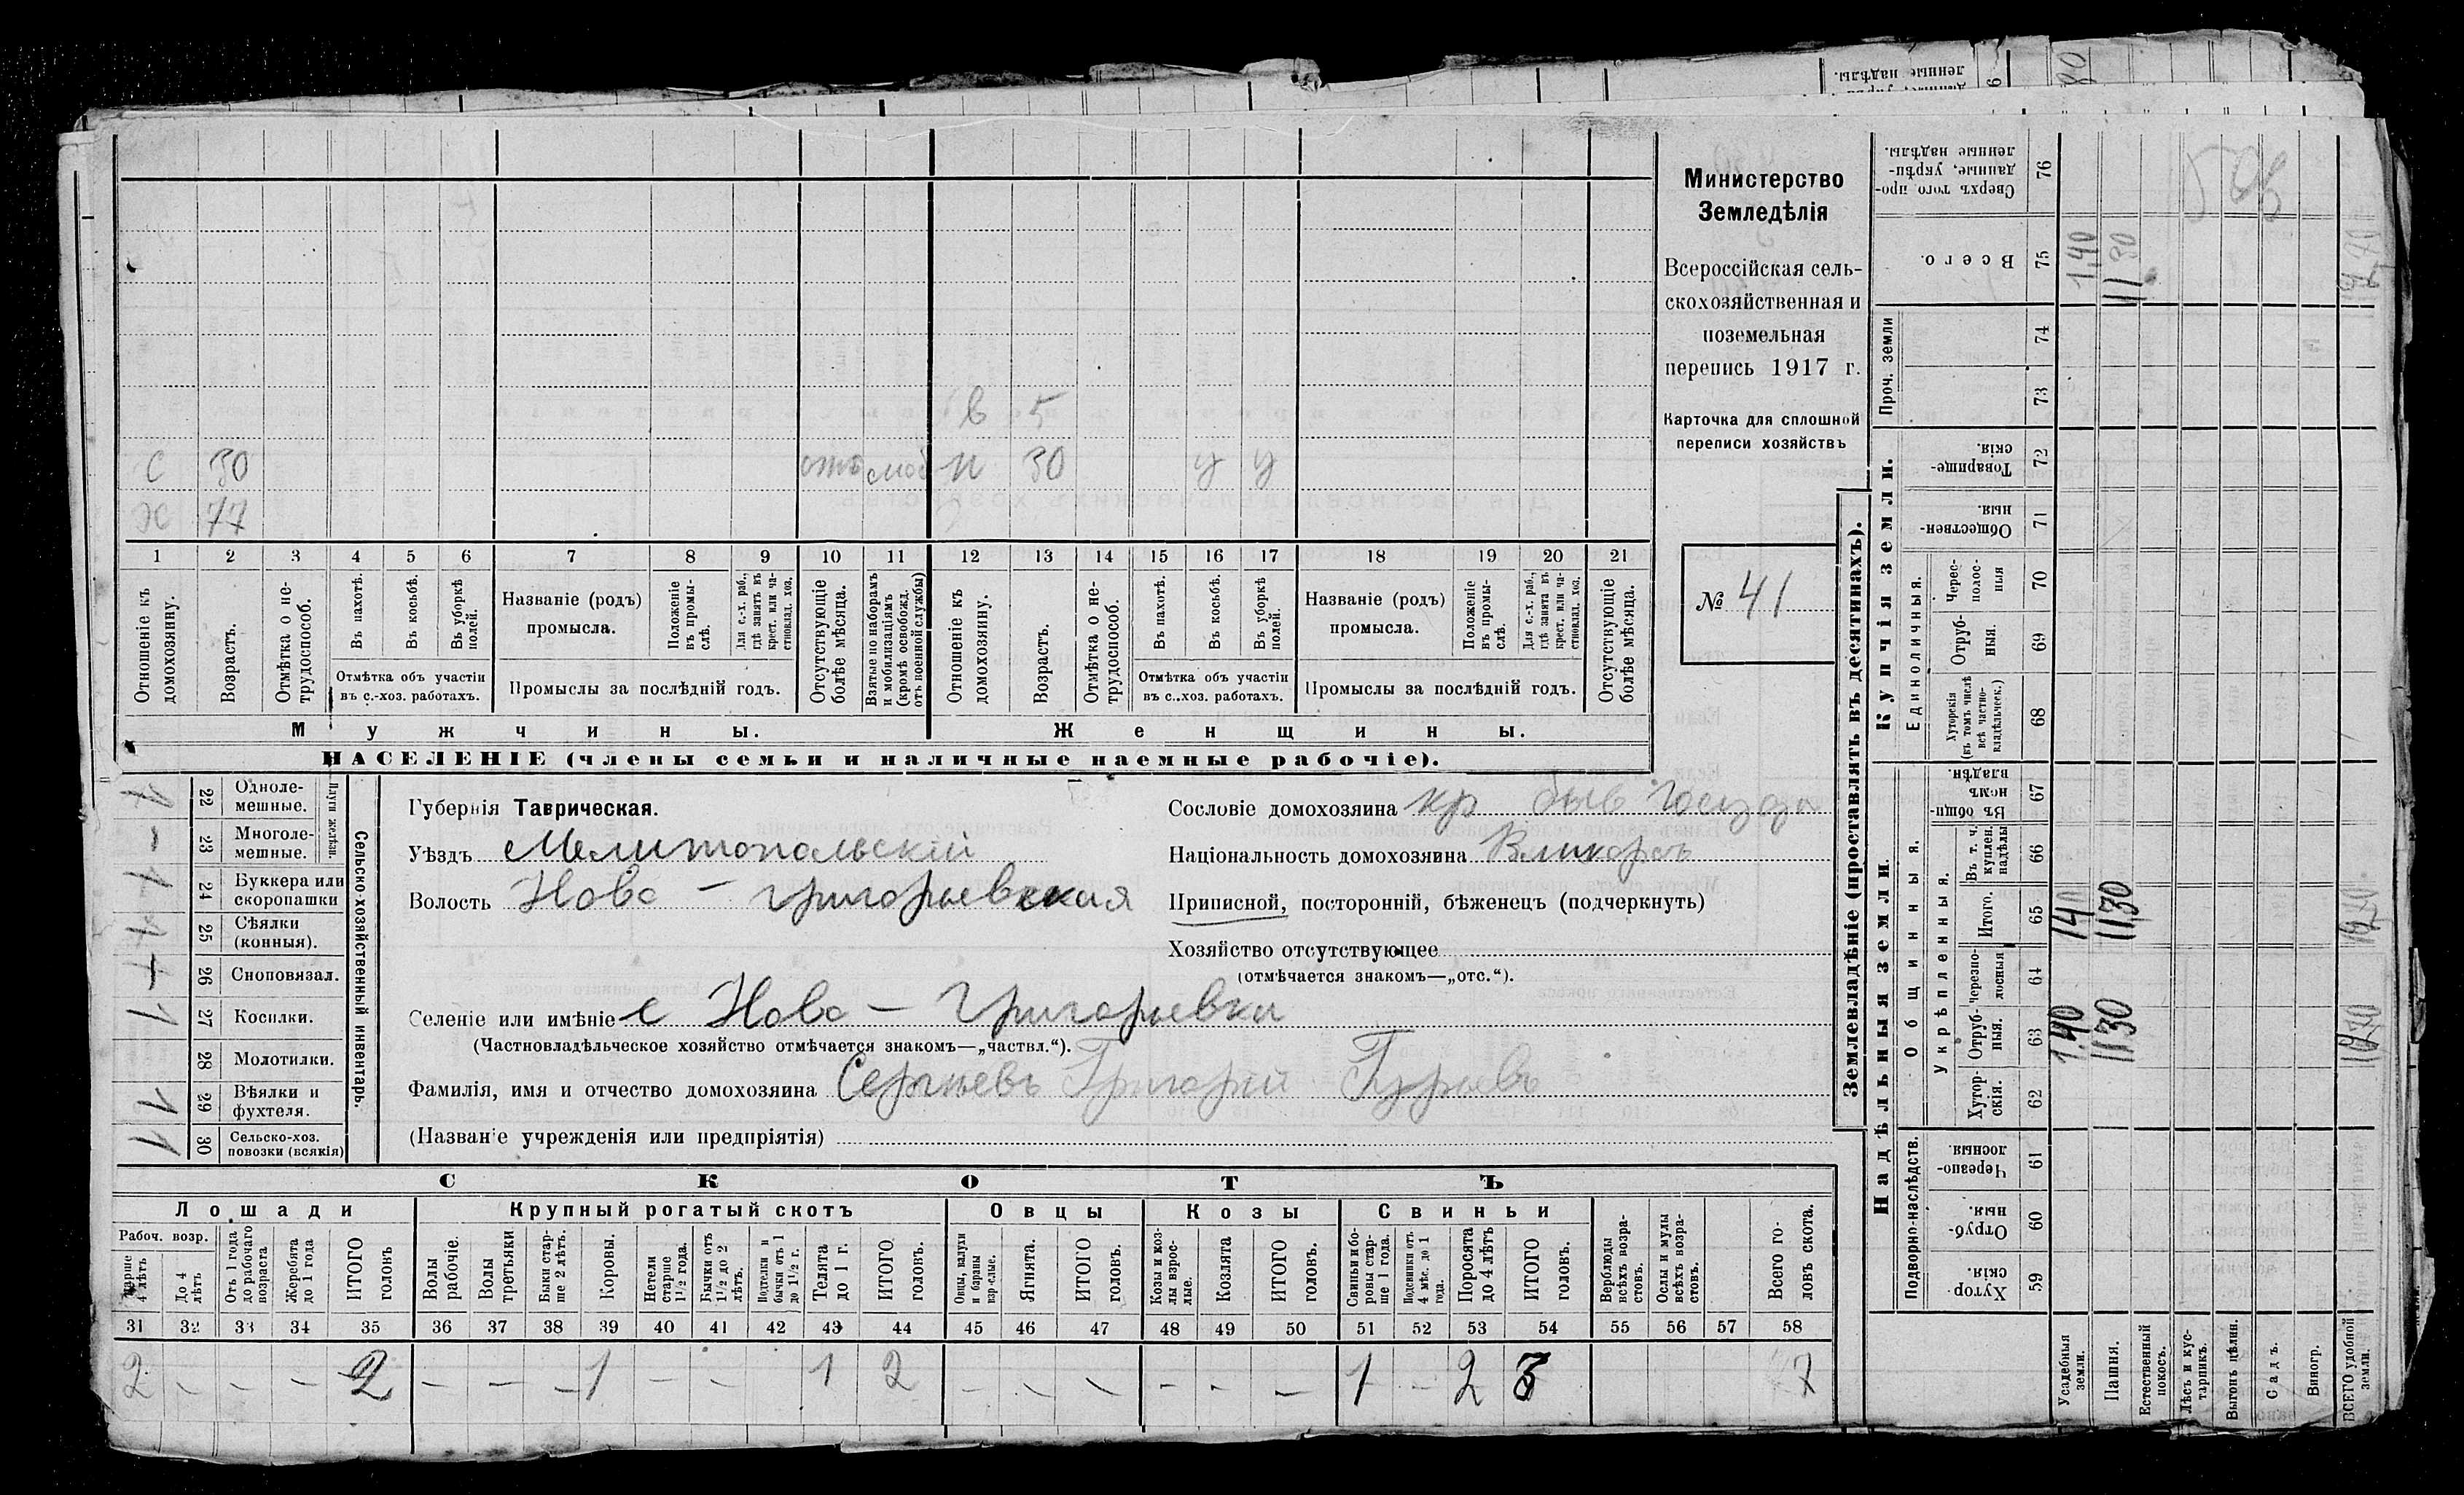 Министерство
Земледѣлія
Всероссійская сель-
скохозяйственная и
поземельная
перепись 1917 г.
Карточка для сплошной
переписи хозяйствъ
№ 41
в 5
с 30 отс моб н 30 у у
х 77
1 2 3 4 5 6 7 8 9 10 11 12 13 14 15 16 17 18 19 20 21
Отношеніе къ домохозяину.
Возрастъ.
Отмѣтка о не-трудоспособ.
Въ пахотѣ.
Въ косьбѣ.
Въ уборкѣ полей.
Отмѣтка объ участіи
въ с.-хоз. работахъ.
Названіе (родъ)
промысла.
Положеніе въ промы-слѣ.
Для с.-х. раб., гдѣ занятъ въ крест. или ча-стновлад. хоз.
Промыслы за послѣдній годъ.
Отсутствующіе болѣе мѣсяца.
Взятые по наборамъ и мобилизаціямъ (кромѣ освобожд. отъ военной службы)
Отношеніе къ домохозяину.
Возрастъ.
Отмѣтка о не-трудоспособ.
Въ пахотѣ.
Въ косьбѣ.
Въ уборкѣ полей.
Отмѣтка объ участіи
въ с..хоз. работахъ.
Названіе (родъ)
промысла.
Положеніе въ промы-слѣ.
Для с.-х. раб., гдѣ занята въ крест. или ча-стновлад. хоз.
Промыслы за послѣдній годъ.
Отсутствующіе болѣе мѣсяца.
Мужчины. Женщины.
НАСЕЛЕНІЕ (члены семьи и наличные наемные рабочіе).
Сельско-хозяйственный инвентарь.
Плуги желѣзн.
1 22 Одноле-мешные.
- 23 Многоле-мешные.
1 24 Буккера или скоропашки
25 Сѣялки (конныя).
26 Сноповязал.
1 27 Косилки.
28 Молотилки.
1 29 Вѣялки и фухтеля.
1 30 Сельско-хоз. повозки (всякія)
Губернія Таврическая.
Уѣздъ Мелитопольскій
Волость Ново - Григорьевская
Селеніе или имѣніе с Ново - Григорьевка
(Частновладѣльческое хозяйство отмѣчается знакомъ—„частвл.“).
Фамилія, имя и отчество домохозяина Сергѣевъ Григорій Гурьевъ
(Названіе учрежденія или предпріятія)
Сословіе домохозяина кр быв Госуда
Національность домохозяина Великорсъ
Приписной, посторонній, бѣженецъ (подчеркнуть)
Хозяйство отсутствующее
(отмѣчается знакомъ—„отс.“).
СКОТЪ
Лошади Крупный рогатый скотъ Овцы Козы Свиньи
Рабоч. возр.
Старше 4 лѣтъ
До 4 лѣтъ
Отъ 1 года до рабочаго возраста
Жеребята до 1 года
ИТОГО головъ
Волы рабочіе.
Волы третьяки
Быки стар-ше 2 лѣтъ.
Коровы.
Нетели старше 1½ года.
Бычки отъ 1½ до 2 лѣтъ.
Подтелки и бычки отъ 1 до 1½ г.
Телята до 1 г.
ИТОГО головъ.
Овцы, валухи и бараны взрослые.
Ягнята.
ИТОГО головъ.
Козы и коз-лы взрос-лые.
Козлята
ИТОГО головъ.
Свиньи и бо-ровы стар-ше 1 года.
Подсвинки отъ 4 мѣс. до 1 года.
Поросята до 4 лѣтъ
ИТОГО головъ.
Верблюды всѣхъ возра-стовъ.
Ослы и мулы всѣхъ возра-стовъ.
Всего го-ловъ скота.
31 32 33 34 35 36 37 38 39 40 41 42 43 44 45 46 47 48 49 50 51 52 53 54 55 56 57 58
2 - - - 2 - - - 1 - - 1 2 - - - - - - 1 - 2 3 7
Землевладѣніе (проставлять въ десятинахъ).
Надѣльныя земли.
Подворно-наслѣдств.
Хутор-скія. 59
Отруб-ныя. 60
Черезпо-лосныя 61
Общинныя.
Укрѣпленныя.
Хутор-скія. 62
Отруб-ныя. 63 1.40 11 30
Черезпо-лосныя 64
Итого. 65 1 40 11 30
Въ т. ч. куплен. надѣлы 66
Въ общин-номъ владѣн. 67
Купчія земли.
Единоличныя.
Хуторскія (въ томъ числѣ всѣ частно-владѣльческ.) 68
Отруб-ныя. 69
Черес-полос-ныя 70
Обществен-ныя. 71
Товарище-скія. 72
Проч. земли
73
74
Всего. 75 1,40 11 30 12,70
Сверхъ того про-данные, укрѣп-ленные надѣлы. 76
Усадебныя земли.
Пашня.
Естественный покосъ.
Лѣсъ и кус-тарникъ.
Выгонъ цѣлин.
Садъ.
Виногр.
ВСЕГО удобной земли.